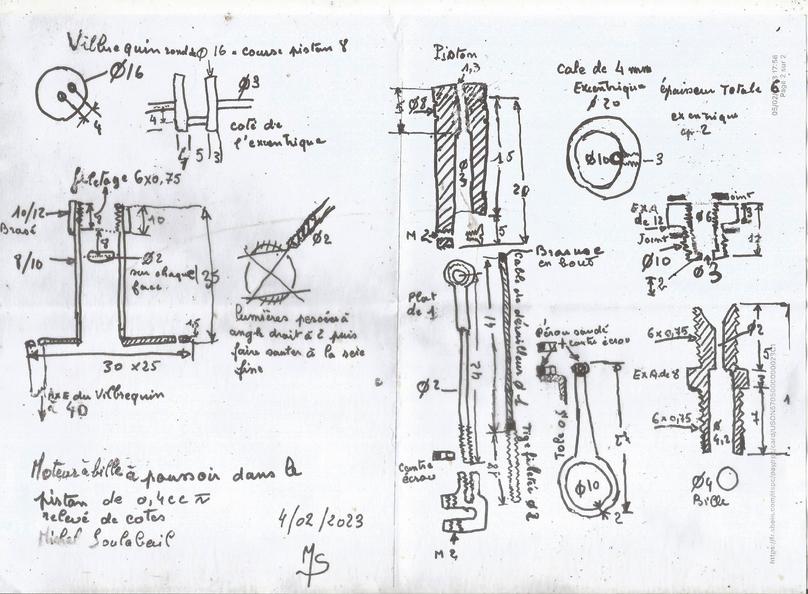 Villrequin rond de Ø 16 - course piston 8
Ø16
4
Ø3
4
4 5 3
coté de
l'exentrique
filetage 6x0,75
10/12
Brasé
10
8
8/10
Ø2
sur chaque
face
25
1,5
30 x25
Axe du Vilbrequin
à 40
Ø2
Lumières percées à
angle droit à 2 puis
faire sauter à la scie
fine
Moteur à bille à poussoir dans le
piston de 0,4cc
relevé de cotes
Michel Soulabail
4/02/2023
MS
Piston
1,3
Ø8
Ø
3
15
20
5
M 2
Cale de 4 mm
Exentrique
Ø 20
Ø10
3
épaisseur Totale 6
exentrique
ep. 2
Joint
EXA
de 12
Joint
Ø6
3
Ø10
Ø3
12
Plat
de 1
Ø2
24
14
Brasure
en bout
Cable de dérailleur Ø 1
Tige filetée Ø 2
Contre
écrou
M 2
écrou soudé
+ contre écrou
Tole 0,5
Ø10
2
6x0,75
Ø2
5
EXA de 8
6x0,75
Ø
4,2
Ø4
Bille
05/02/2023 17:56
Page 2 sur 2